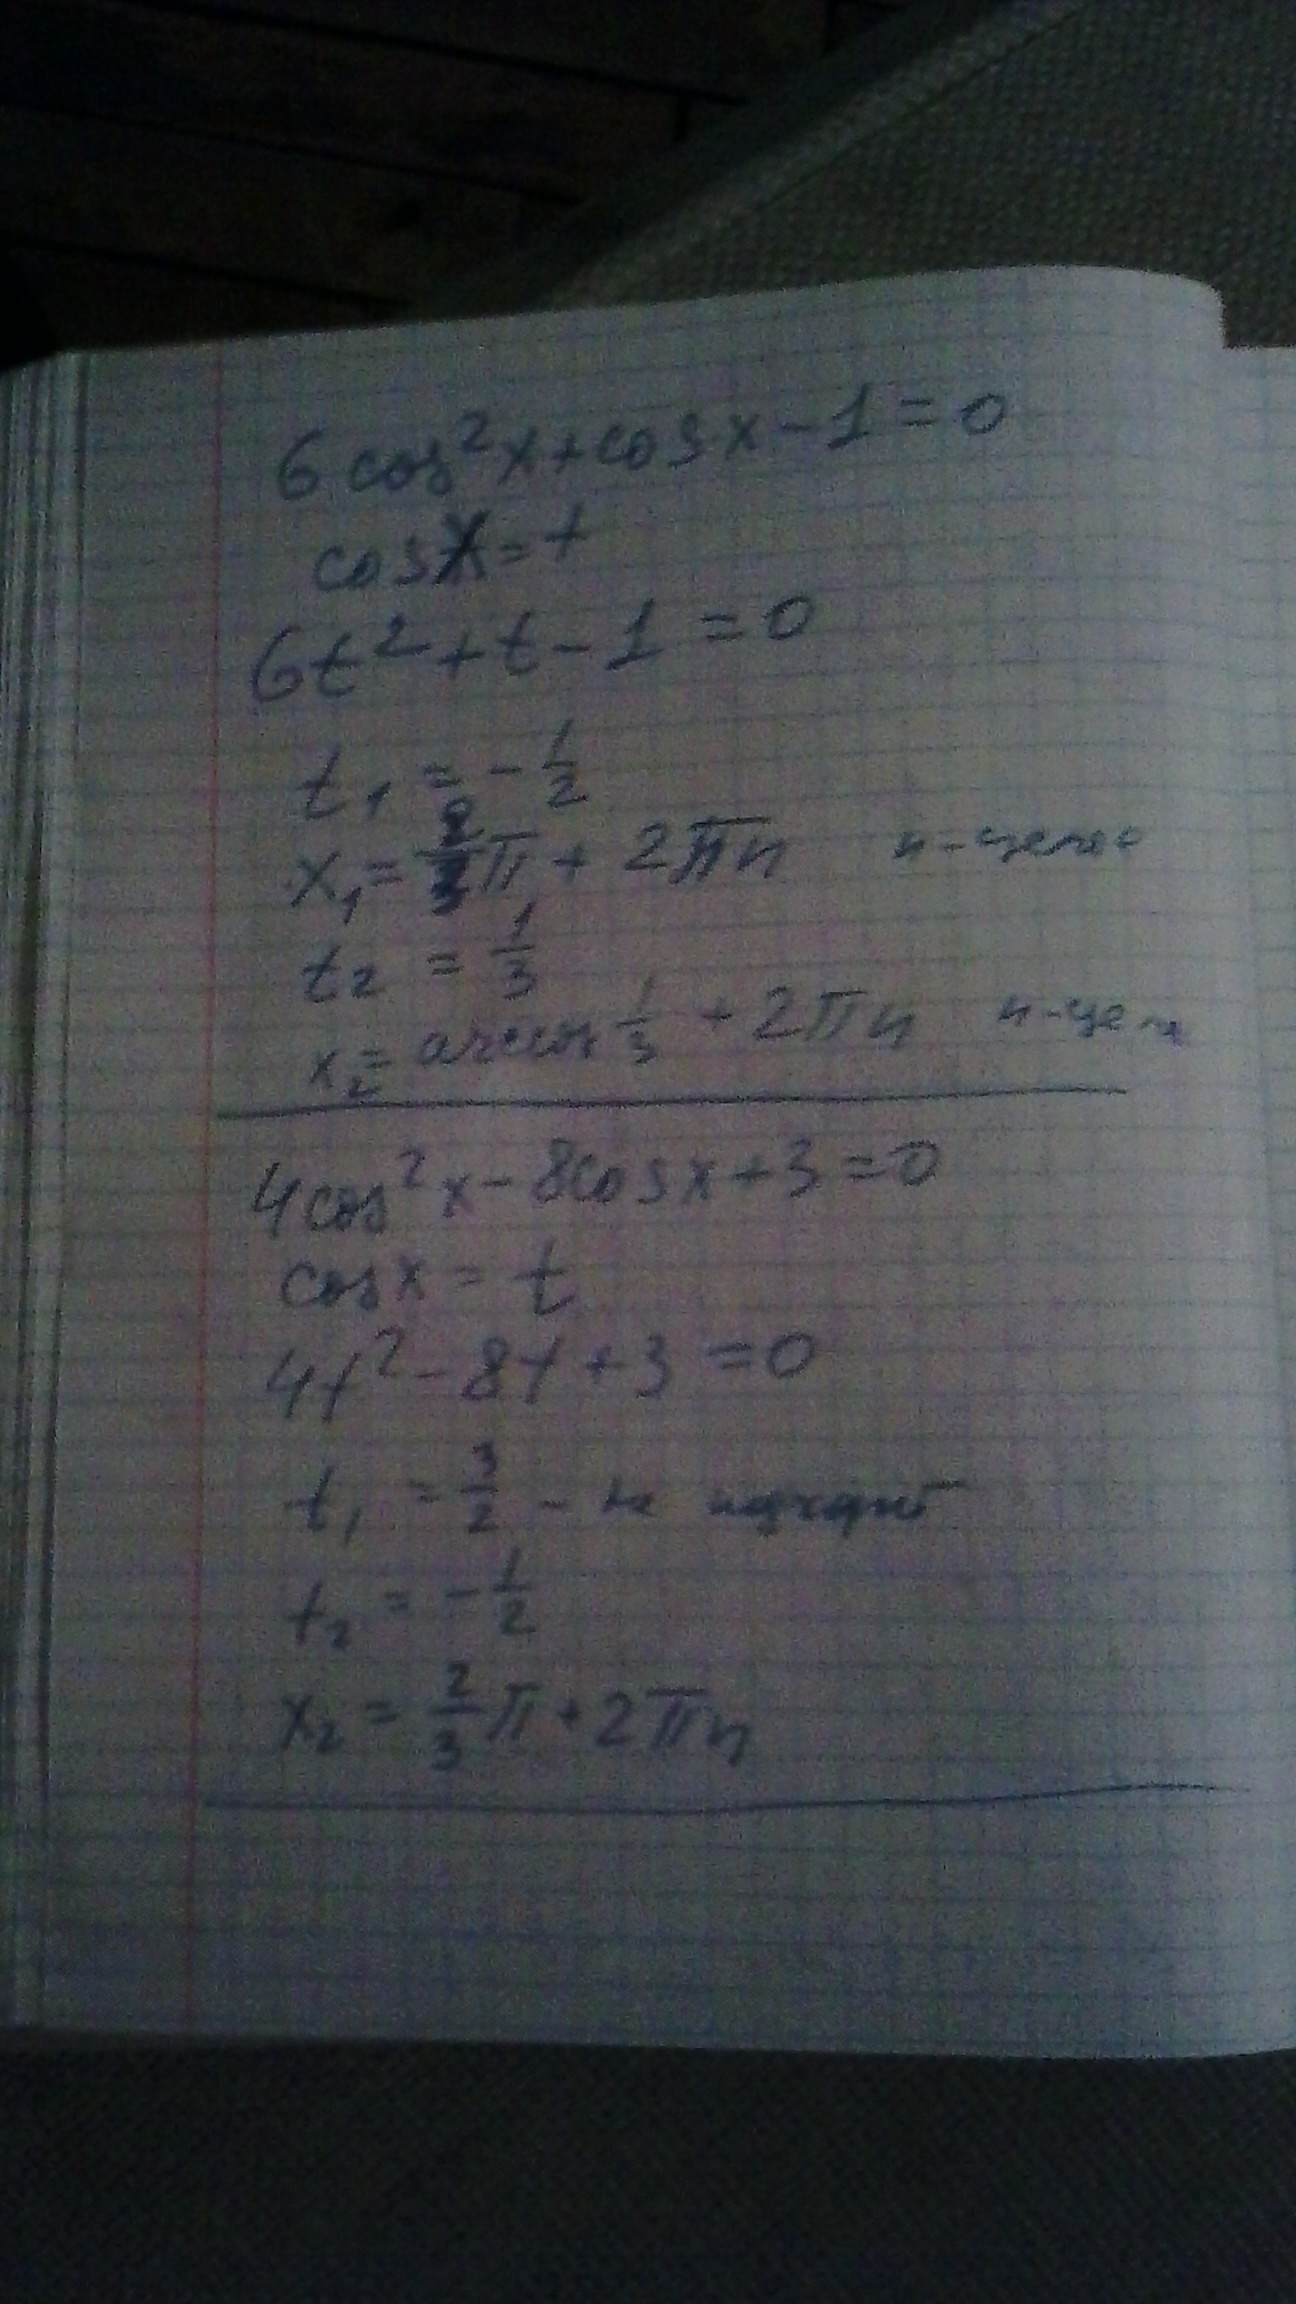 6cos²x+cosx-1=0
cosx=t
6t²+t-1=0
t₁=-1/2
x₁=2/3π+2πn n-целое
t₂=1/3
x₂=arccos 1/3+2πn n-целое
4cos²x-8cosx+3=0
cosx=t
4t²-8t+3=0
t₁=3/2 - не подходит
t₂=-1/2
x₂=2/3π+2πn